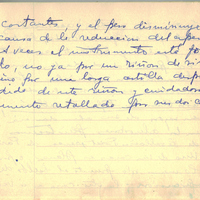 cortantes, y el peso disminuye
causa de la reducción del
A veces el instrumento está
do, no ya por un riñón de
sino por una larga astilla
dido de este riñón y cuidados
mente retallado por sus dos c